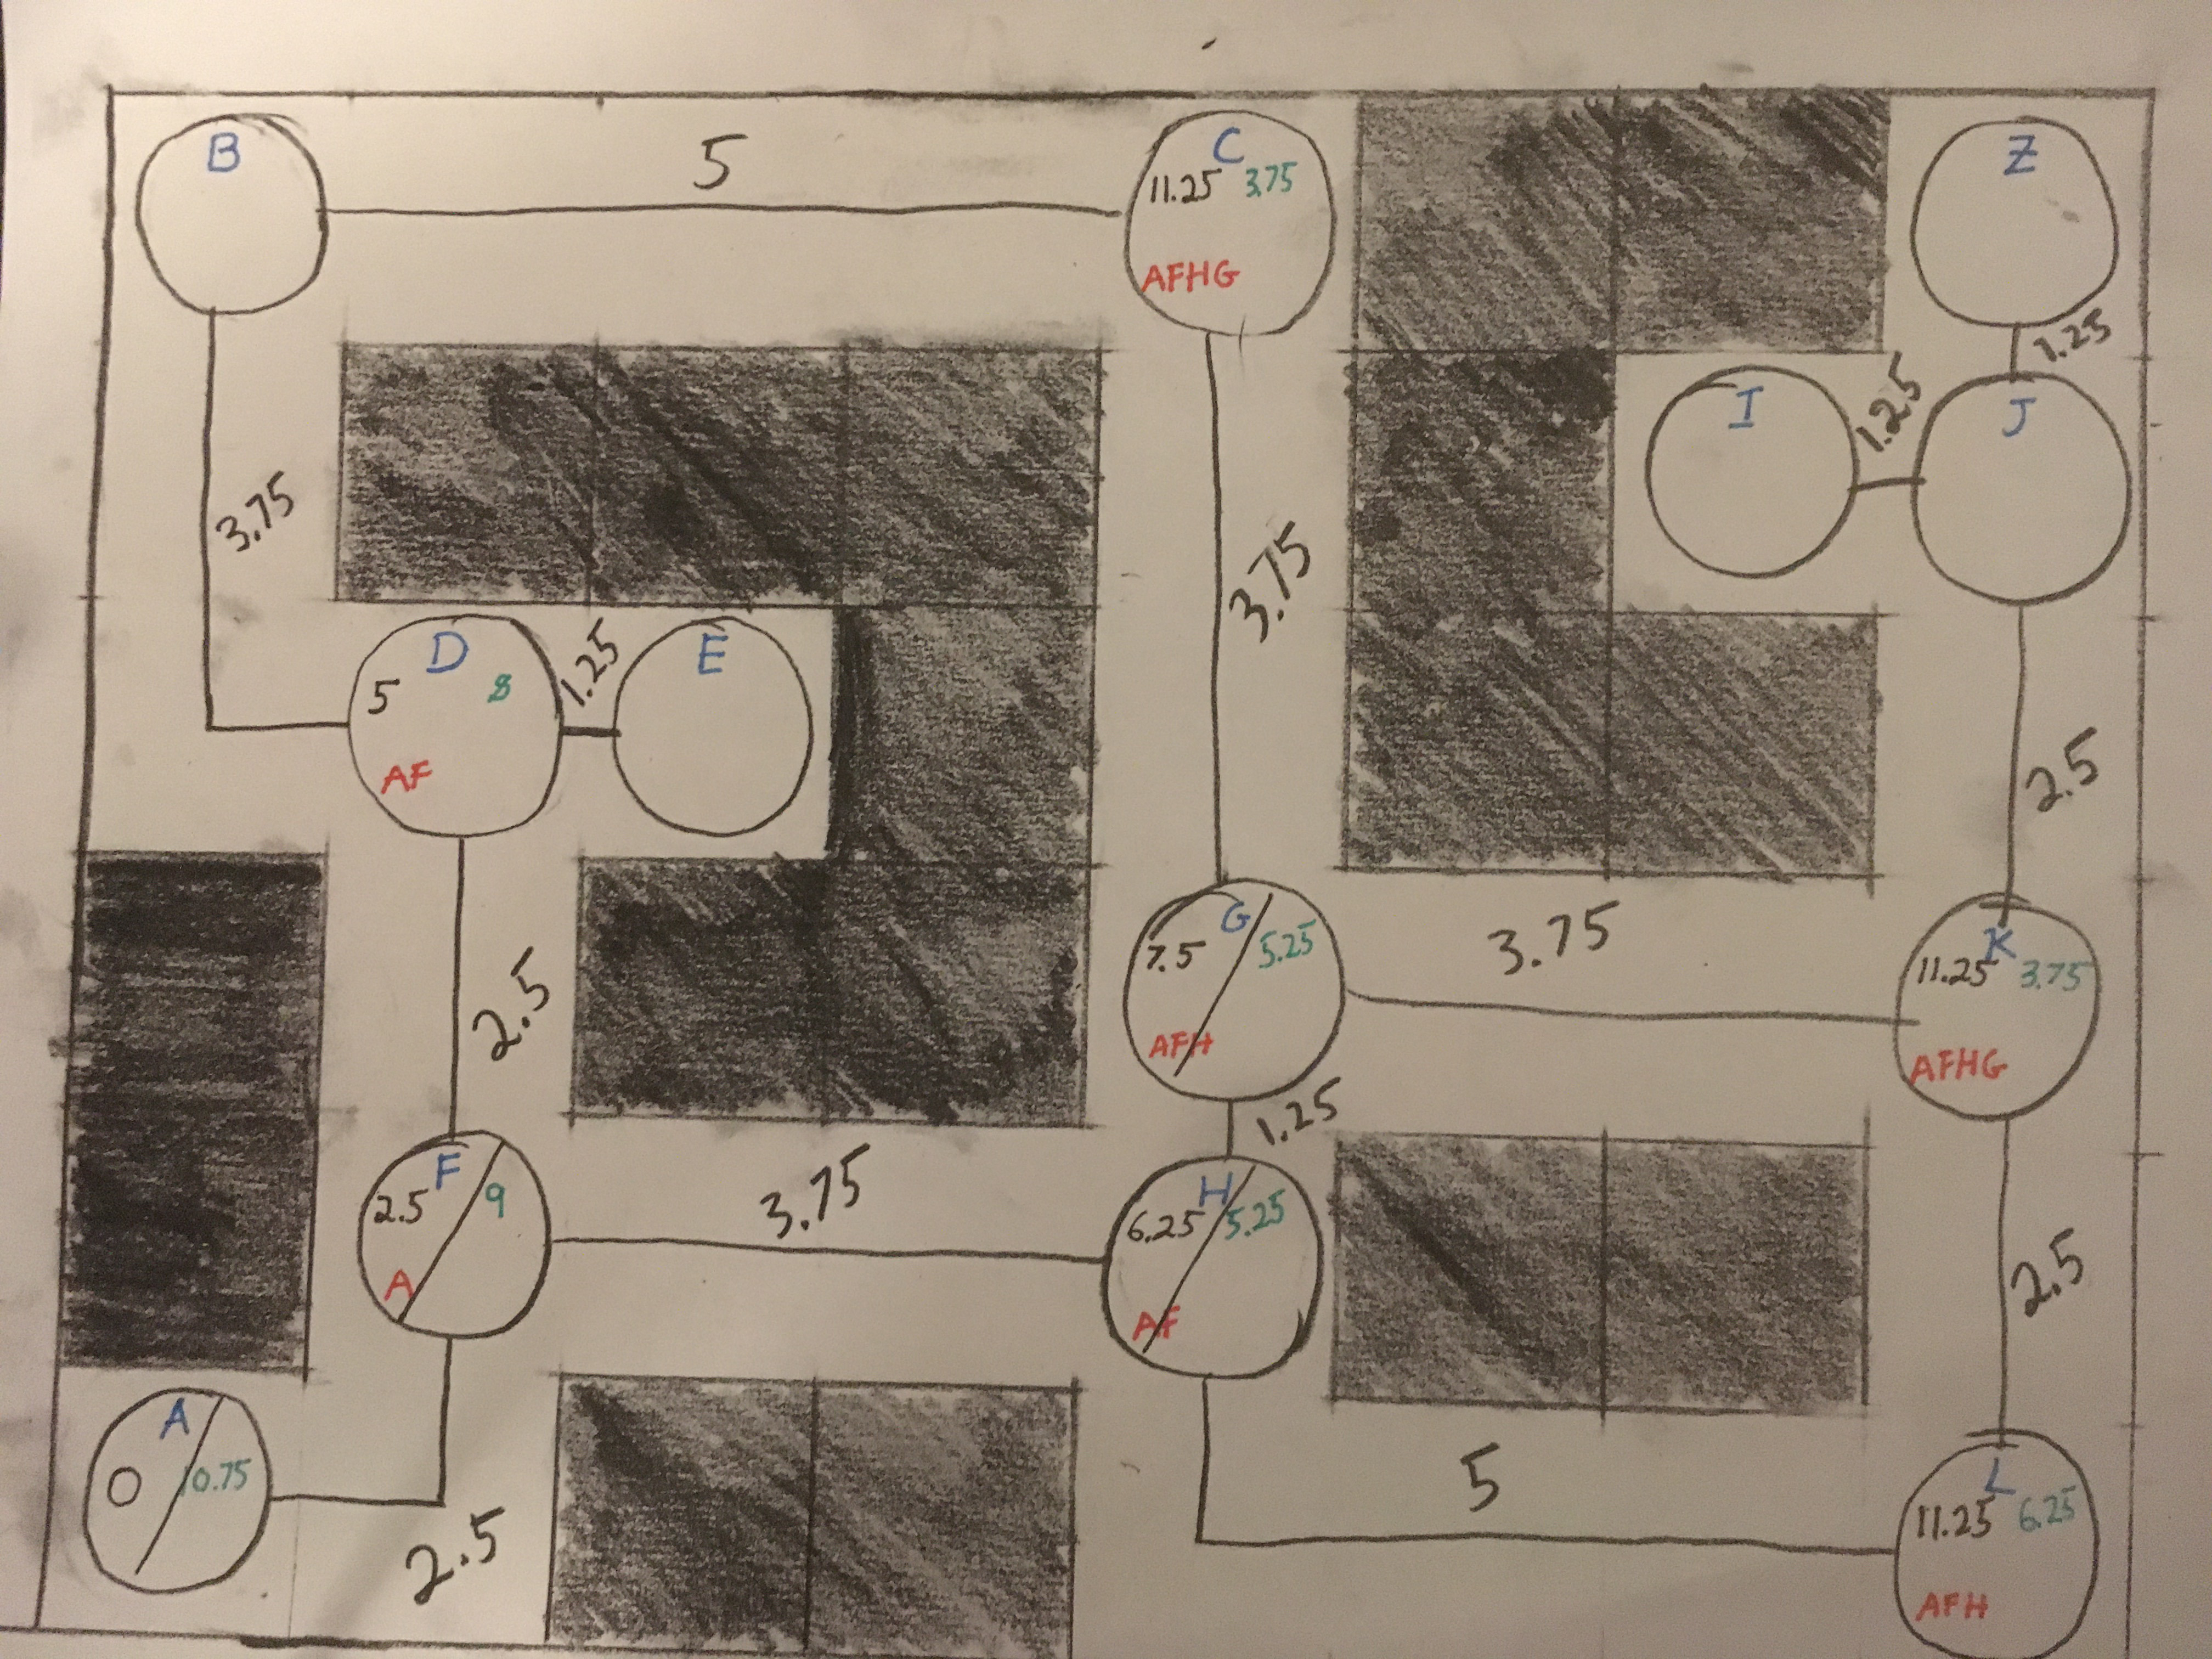 B
5
C
11.25 3.75
AFHG
Z
1.25
I
1.25
J
3.75
3.75
D
5 8
AF
1.25
E
2.5
2.5
G
7.5 5.25
AFH
3.75
K
11.25 3.75
AFHG
1.25
F
2.5 9
A
3.75
H
6.25 5.25
AF
2.5
A
0 10.75
2.5
5
L
11.25 6.25
AFH